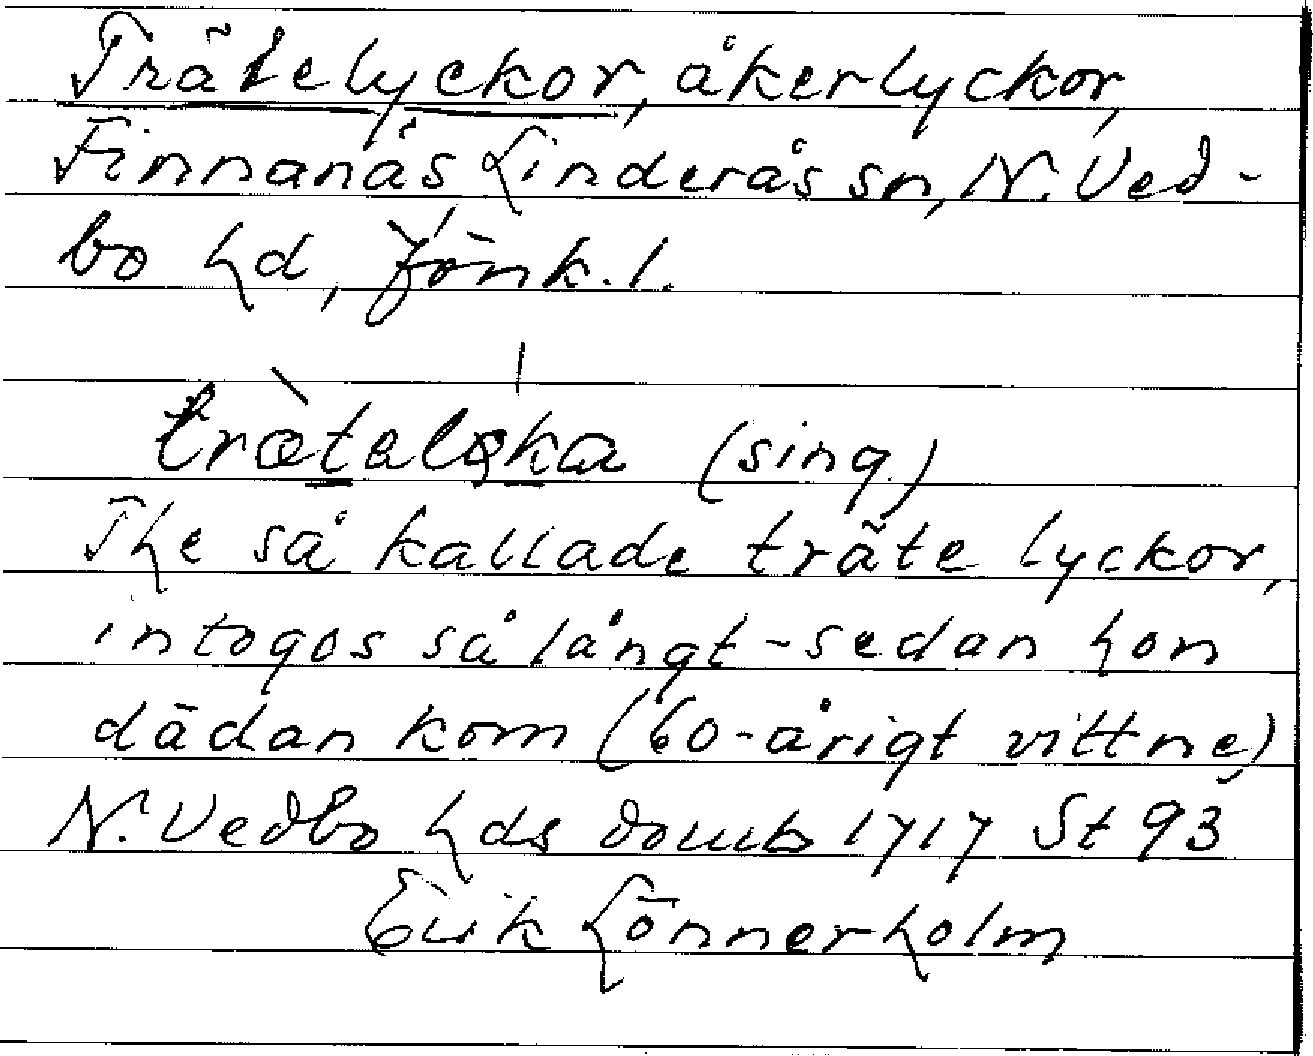 Trätelyckor, åkerlyckor,
Finnanäs Linderås sn, N. Ved-
bo hd, Jönk. l.
trætaløka (sing.)
The så kallade träte lyckor,
intogos så långt - sedan hon
dädan kom (60-årigt vittne)
N. Vedbo hds domb 1717 St 93
Erik Lönnerholm